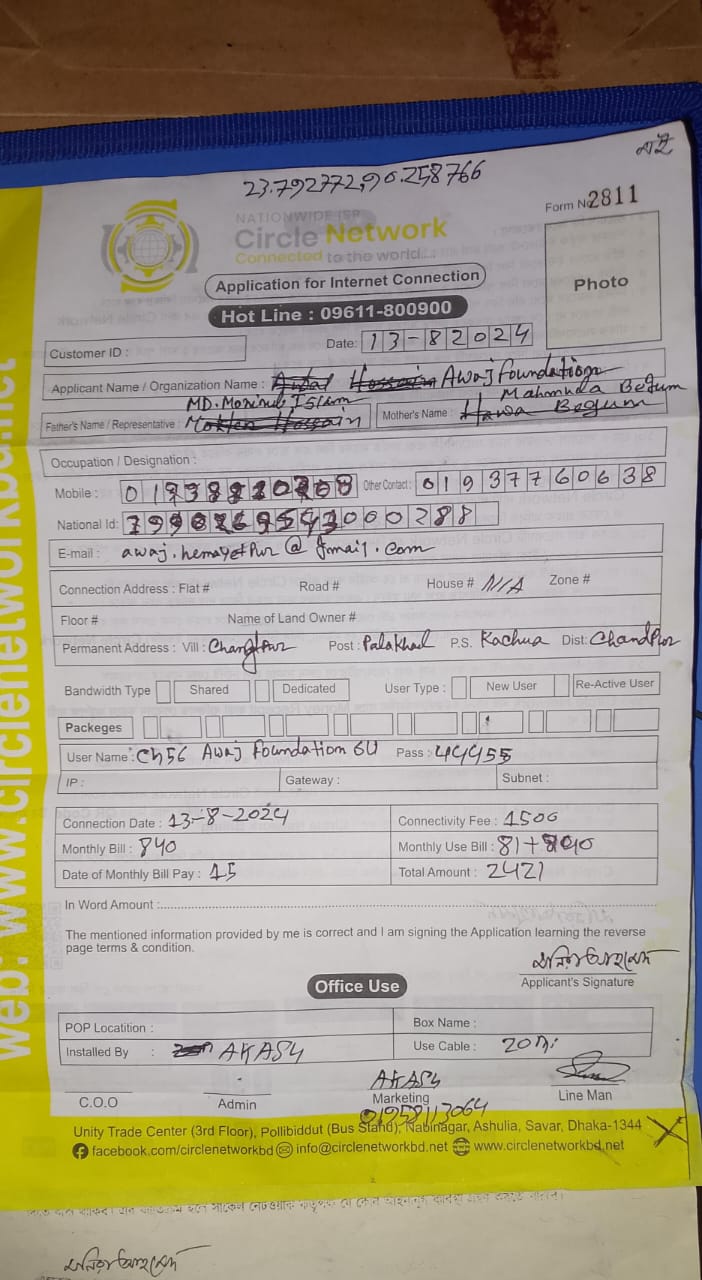 এই
23.792772,90.258766
Form No 2811
NATIONWIDE ISP
Circle Network
Connected to the world...
Application for Internet Connection
Photo
Hot Line : 09611-800900
Customer ID :
Date: 13-82024
Applicant Name / Organization Name : Awaj Foundation
MD. Monirul Islam
Mahmuda Begum
Father's Name / Representative :
Mother's Name : Begum
Occupation / Designation :
Mobile :
Other Contact : 01937760638
National Id:
E-mail : awaj.hemayetpur@gmail.com
Connection Address : Flat # Road # House # N/A Zone #
Floor # Name of Land Owner #
Permanent Address : Vill : Post : Palakhal P.S. Kachua Dist: Chandpur
Bandwidth Type Shared Dedicated User Type : New User Re-Active User
Packeges
User Name : Ch56 Awaj Foundation GU Pass : 44455
IP : Gateway : Subnet :
Connection Date : 13-8-2024 Connectivity Fee : 1500
Monthly Bill : 840 Monthly Use Bill : 81+840
Date of Monthly Bill Pay : 15 Total Amount : 2421
In Word Amount :
The mentioned information provided by me is correct and I am signing the Application learning the reverse
page terms & condition.
Applicant's Signature
Office Use
POP Locatition : Box Name :
Installed By : AKASH Use Cable : 20 mi
AKASH
C.O.O Admin Marketing Line Man
01958113064
Unity Trade Center (3rd Floor), Pollibiddut (Bus Stand), Nabinagar, Ashulia, Savar, Dhaka-1344
facebook.com/circlenetworkbd info@circlenetworkbd.net www.circlenetworkbd.net
web: www.circlenetworkbd.net